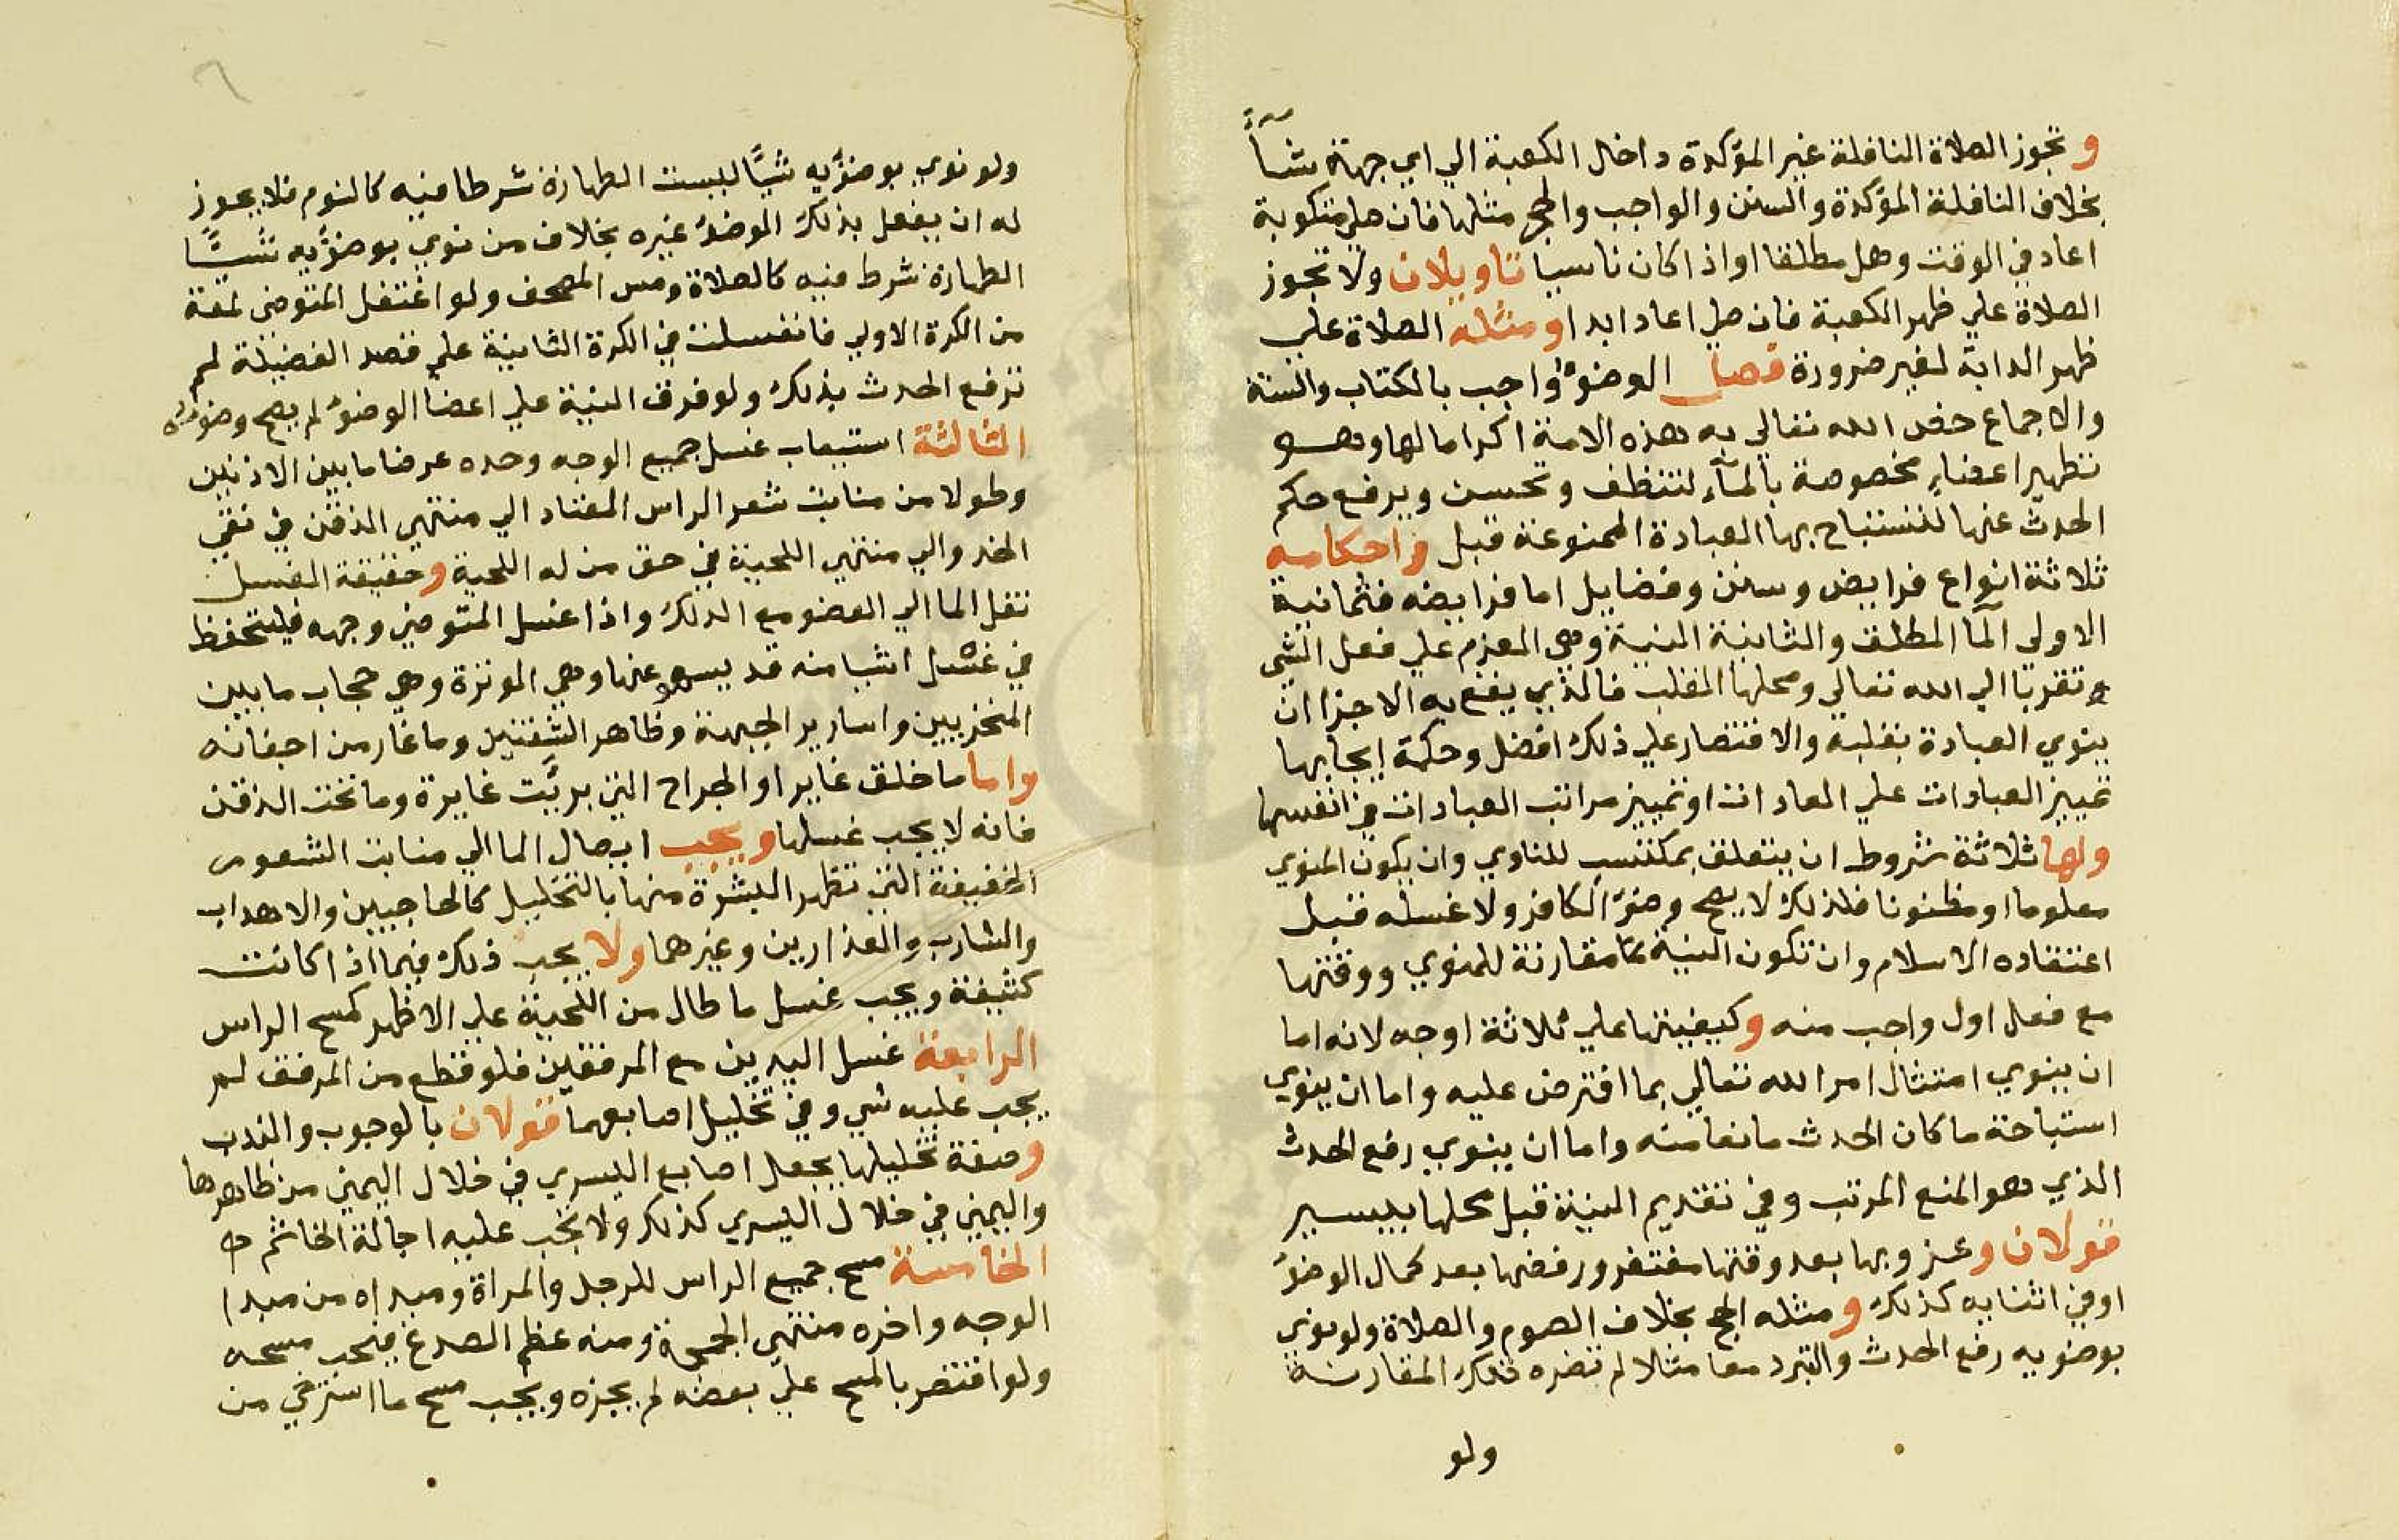 وتجوز الصلاة النافلة غير المؤكدة داخل الكعبة الي اي جهة شآءً
بخلاف النافلة المؤكدة والسنن والواجب والحج مثلها فان صلي مكتوبة
اعاد في الوقت وهل مطلقا او اذا كان ناسيا تاويلان ولا تجوز
الصلاة علي ظهر الكعبة فان صلي اعاد ابدا ومثله الصلاة علي
ظهر الدابة لغير ضرورة فصل الوضؤُ واجب بالكتاب والسنة
والاجماع خص الله تعالي به هذه الامة اكراما لها وهو
تطهير اعضاءٍ مخصوصة بالمآءِ لتنظف وتحسن ويرفع حكم
الحدث عنها لتستباح بها العبادة الممنوعة قبل واحكامه
ثلاثة انواع فرايض وسنن وفضايل اما فرايضه فثمانية
الاولي المآ المطلق والثانية النية وهي العزم علي فعل الشي
تقربا الي الله تعالي ومحلها القلب فالذي يقع به الاجزا ان
ينوي العبادة بقلبه والاقتصار علي ذلك افضل وحكمة ايجابها
تمييز العبادات علي العادات او تمييز مراتب العبادات في انفسها
ولها ثلاثة شروط ان يتعلق بمكتسب للناوي وان يكون المنوي
معلوما او مظنونا فلذلك لا يصح وضؤُ الكافر ولا غسله قبل
اعتقاده الاسلام وان تكون النية مقارنة للمنوي ووقتها
مع فعل اول واجب منه وكيفيتها علي ثلاثة اوجه لانه اما
ان ينوي امتثال امر الله تعالي بما افترض عليه واما ان ينوي
استباحة ما كان الحدث مانعا منه واما ان ينوي رفع الحدث
الذي هو المنع المرتب وفي تقديم النية قبل محلها بيسير
قولان وعزوبها بعد وقتها مغتفر ورفضها بعد كمال الوضؤُ
او في اثنايه كذلك ومثله الحج بخلاف الصوم والصلاة ولو نوي
بوضويه رفع الحدث والتبرد معا مثالا لم تضره تلك المقارنة
ولو
ولو نوي بوضؤُيه شيًا ليست الطهارة شرطا فيه كالنوم فلا يجوز
له ان يفعل بذلك الوضؤُ غيره بخلاف من نوي بوضؤُيه شيًا
الطهارة شرط فيه كالصلاة ومس المصحف ولو اغتفل المتوضي لمعة
من الكرة الاولي فانغسلت في الكرة الثانية علي قصد الفضيلة لم
ترفع الحدث بذلك ولو فرق النية علي اعضآ الوضؤُ لم يصح وضؤُه
الثالثة استيعاب غسل جميع الوجه وحده عرضا ما بين الاذنين
وطولا من منابت شعر الراس المعتاد الي منتهي الذقن في نقي
الخد والي منتهي اللحية في حق من له اللحية وحقيقة الغسل
نقل الما الي العضو مع الدلك واذا غسل المتوضي وجهه فليتحفظ
في غسل اشيا منه قد يسهو عنها وهي الوترة وهي حجاب ما بين
المنخريين واسارير الجبهة وظاهر الشفتين وما غار من اجفانه
واما ما خلق غايرا او الجراح التي برئَت غايرة وما تحت الذقن
فانه لا يجب غسلها ويجب ايصال الما الي منابت الشعور
الخفيفة التي تظهر البشرة منها بالتخليل كالحاجبين والاهداب
والشارب والعذارين وغيرهما ولا يجب ذلك فيما اذا كانت
كثيفة ويجب غسل ما طال من اللحية علي الاظهر كمسح الراس
الرابعة غسل اليدين مع المرفقين فلو قطع من المرفق لم
يجب عليه شي وفي تخليل اصابعهما قولان بالوجوب والندب
وصفة تخليلها يجعل اصابع اليسري في خلال اليمني من ظاهرها
واليمني في خلال اليسري كذلك ولا يجب عليه اجالة الخاتم
الخامسة مسح جميع الراس للرجل والمراة ومبداه من مبدا
الوجه واخره منتهي الجمجمة ومنه عظم الصدغ فيجب مسحه
ولو اقتصر بالمسح علي بعضه لم يجزه ويجب مسح ما استرخي من